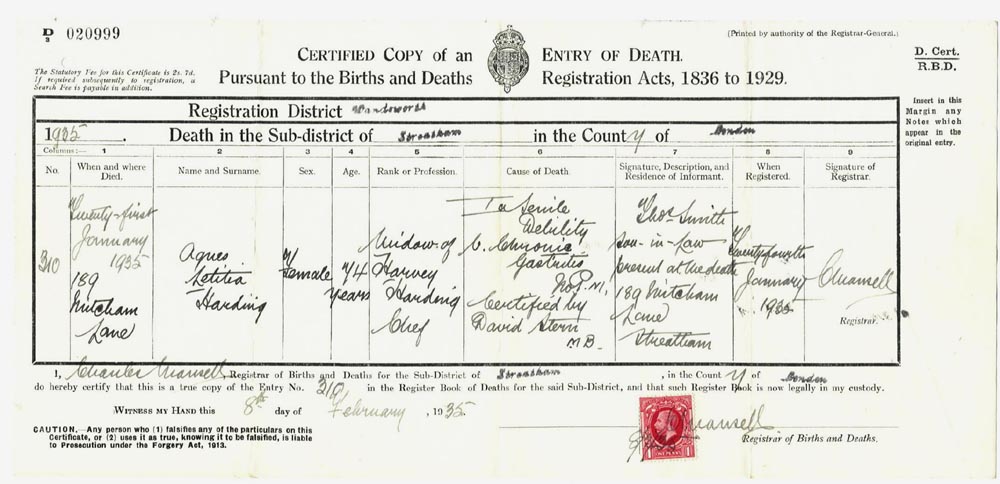 D/3 020999
(Printed by authority of the Registrar-General.)
CERTIFIED COPY OF AN ENTRY OF DEATH.
Pursuant to the Births and Deaths Registration Acts, 1836 to 1929.
D. Cert.
R.B.D.
The Statutory Fee for this Certificate is 2s. 7d.
If required subsequently to registration, a
Search Fee is payable in addition.
Insert in this
Margin any
Notes which
appear in the
original entry.
Registration District Wandsworth
1935. Death in the Sub-district of Streatham in the County of London
Columns:— 1 2 3 4 5 6 7 8 9
No.
When and where
Died.
Name and Surname.
Sex.
Age.
Rank or Profession.
Cause of Death.
Signature, Description, and
Residence of Informant.
When
Registered.
Signature of
Registrar.
310
Twenty-first
January
1935
189
Mitcham
Lane
Agnes
Letitia
Harding
Female
74
years
Widow of
Harvey
Harding
Chef
I a Senile
Debility
Chronic
Gastritis
No P.M.
Certified by
David Stern
M.B.
Thos Smith
son-in-law
present at the death
189 Mitcham
Lane
Streatham
Twenty fourth
January
1935
C Mansell
Registrar.
I, Charles Mansell, Registrar of Births and Deaths for the Sub-District of Streatham, in the County of London
do hereby certify that this is a true copy of the Entry No. 310 in the Register Book of Deaths for the said Sub-District, and that such Register Book is now legally in my custody.
WITNESS MY HAND this 8th day of February, 1935.
CAUTION.—Any person who (1) falsifies any of the particulars on this
Certificate, or (2) uses it as true, knowing it to be falsified, is liable
to Prosecution under the Forgery Act, 1913.
Mansell
Registrar of Births and Deaths.
1 ONE PENNY 1